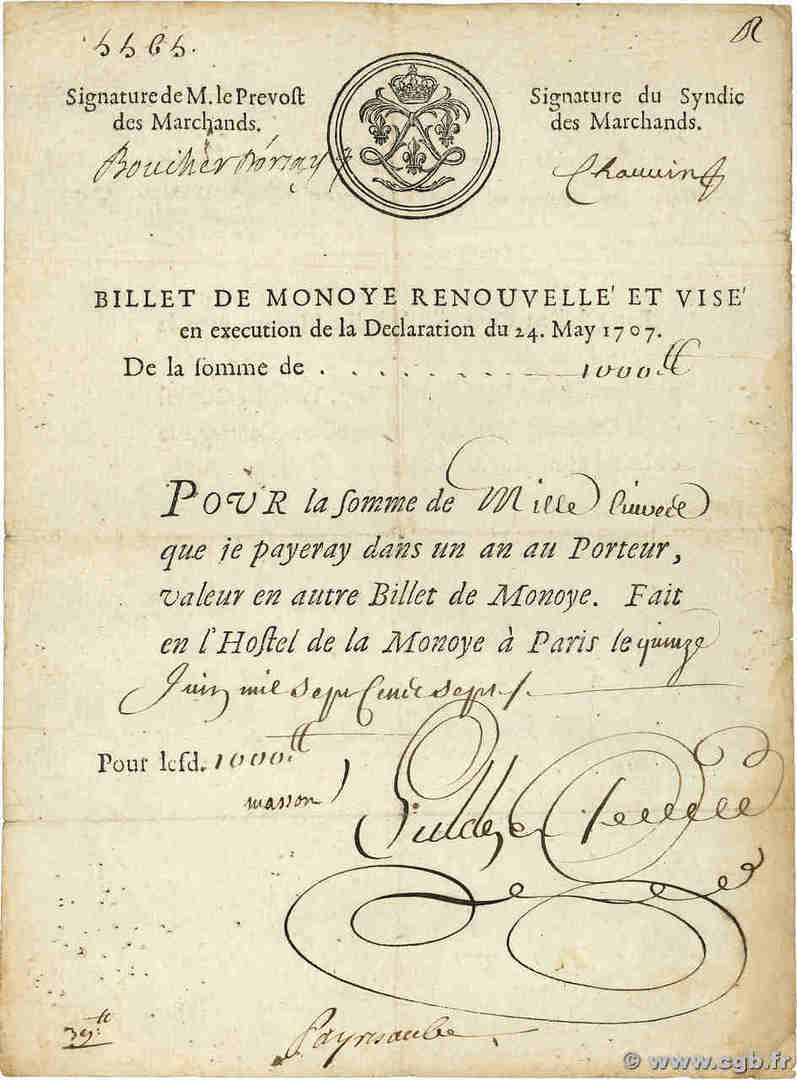 R
Signature de M. le Prevoſt
des Marchands.
Signature du Syndic
des Marchands.
Boucher Dorsay
Chauvin
BILLET DE MONOYE RENOUVELLE' ET VISE'
en execution de la Declaration du 24. May 1707.
De la ſomme de . . . . . . . . . 1000.tt
POUR la ſomme de Mille livres
que je payeray dans un an au Porteur,
valeur en autre Billet de Monoye. Fait
en l'Hoſtel de la Monoye à Paris le quinze
Juin mil sept cens sept
Pour leſd. 1000.tt
masson
© www.cgb.fr